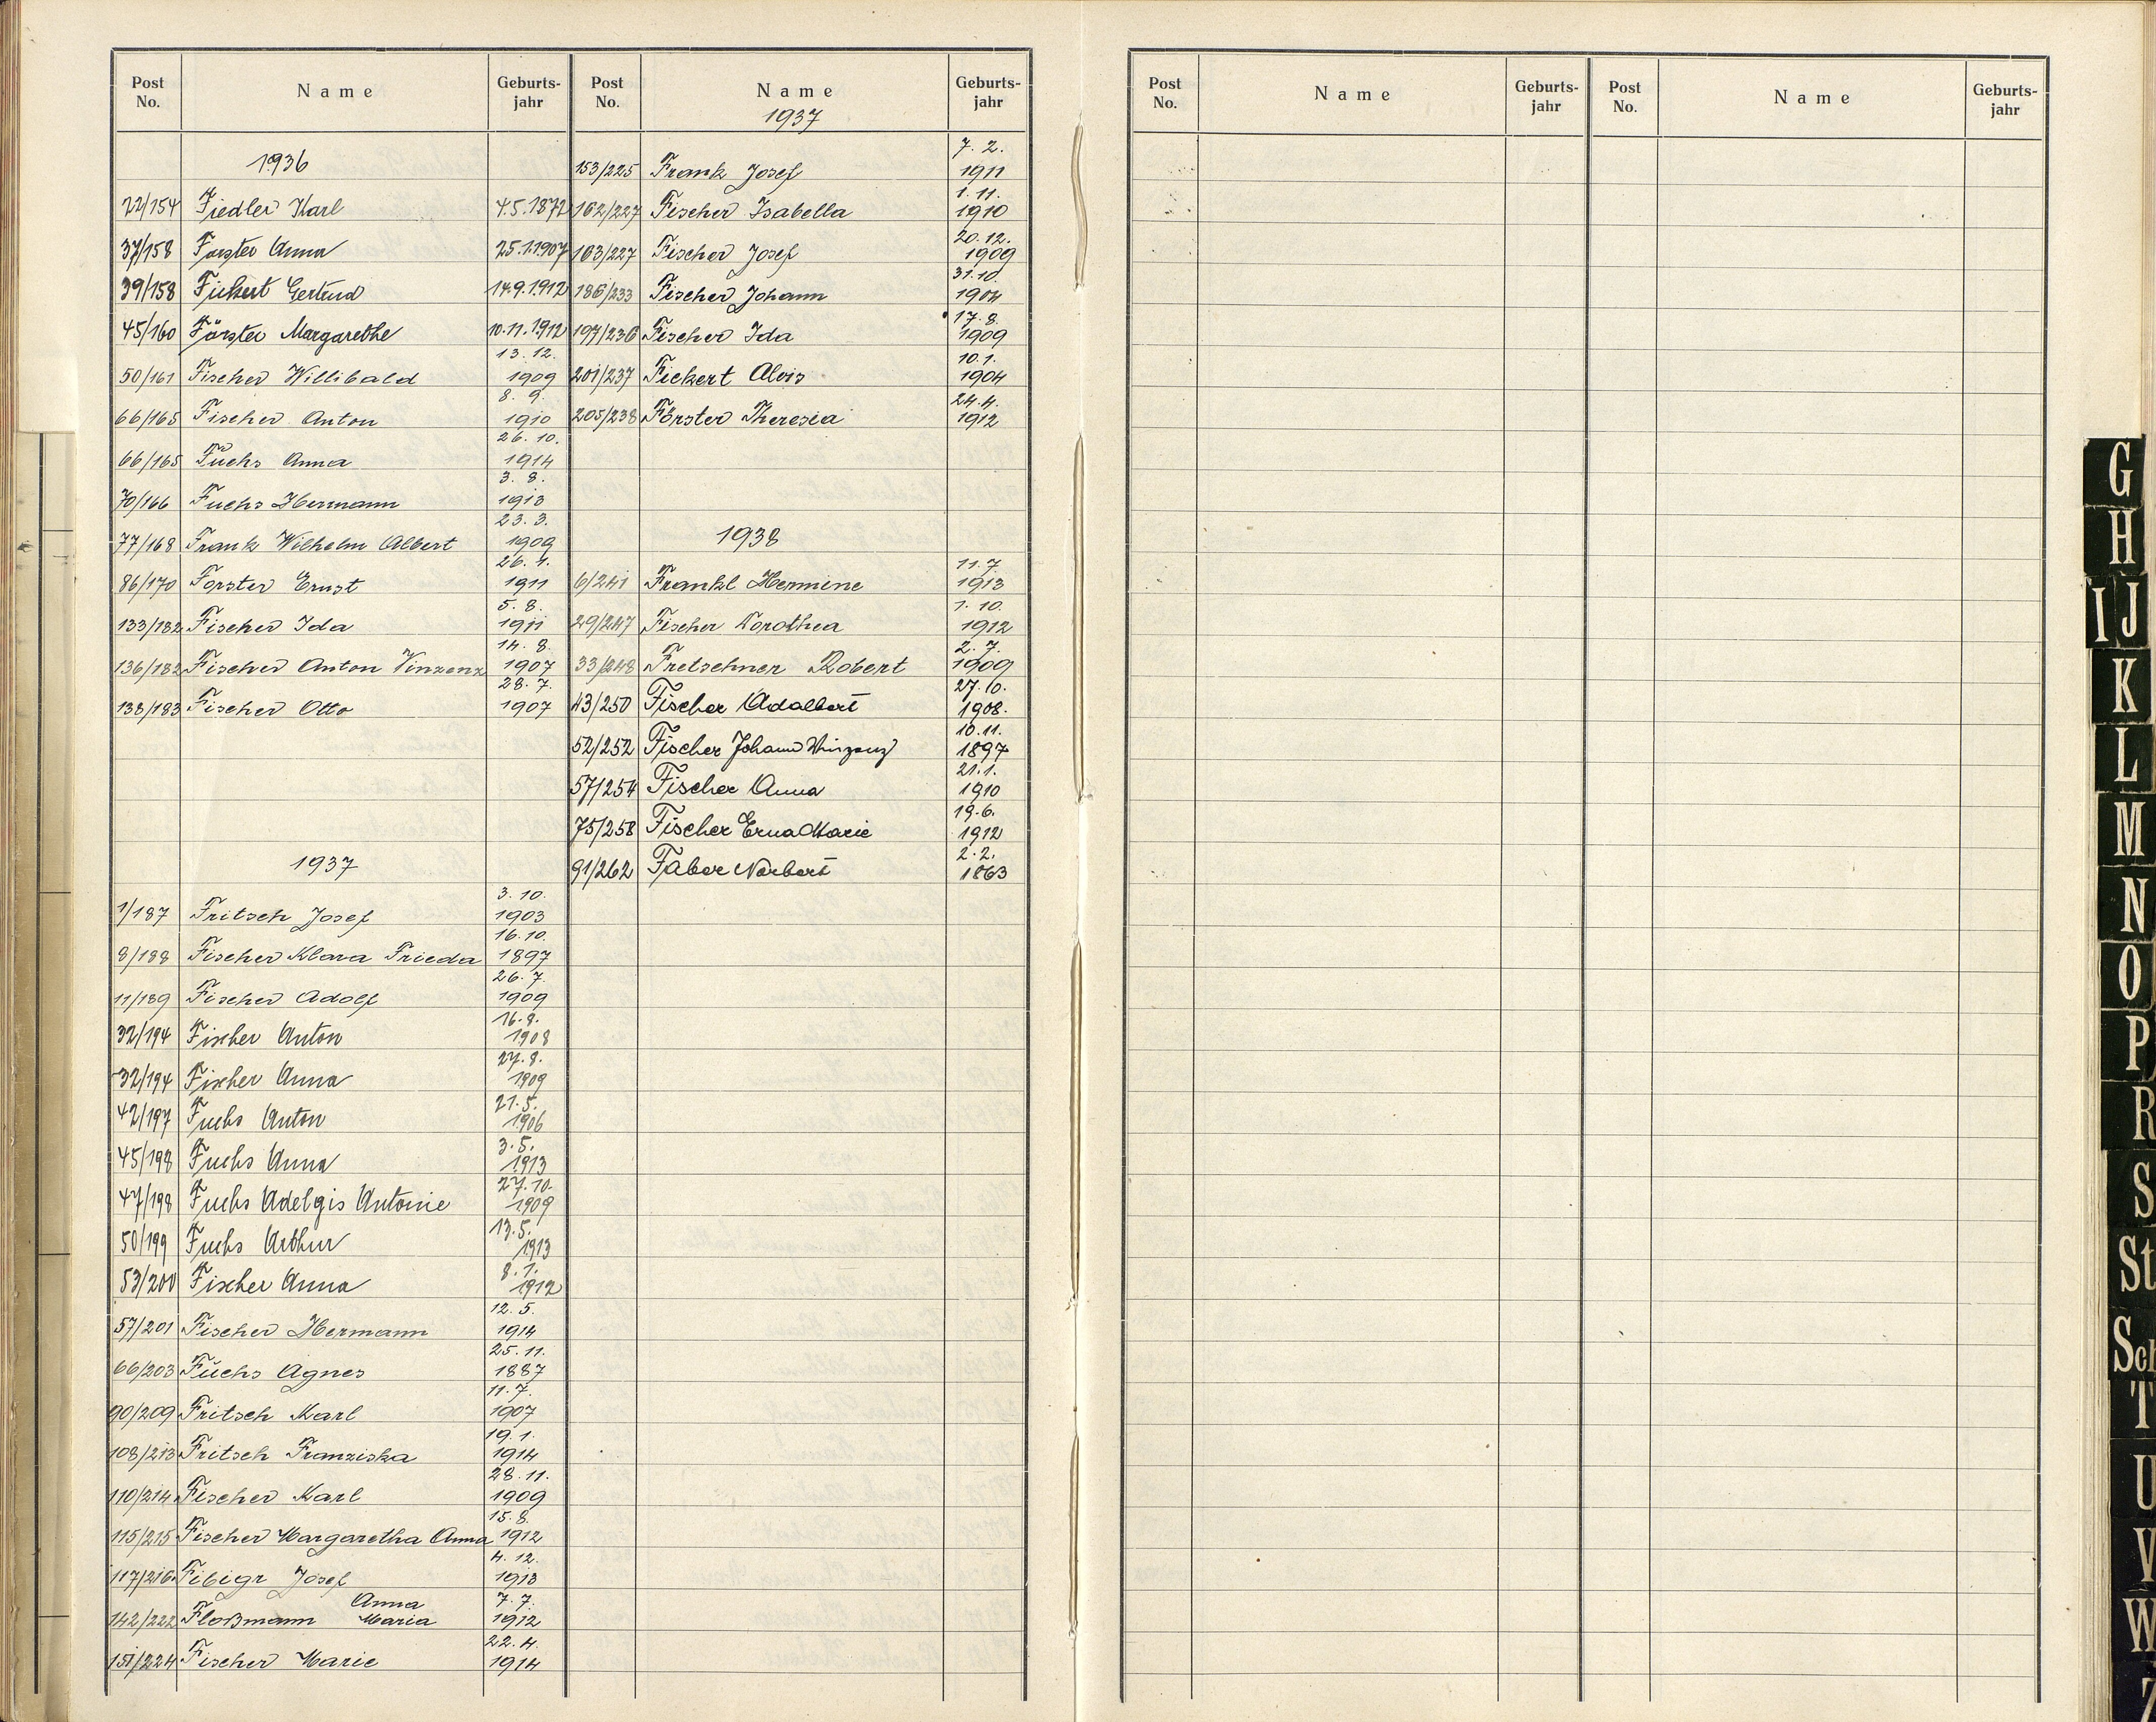 Post No. Name Geburts-jahr
1936
22/154 Fiedler Karl 4.5.1872
37/158 Forster Anna 25.1.1907
39/158 Fickert Gertrud 14.9.1912
45/160 Förster Margarethe 10.11.1912
50/161 Fischer Willibald 13.12. 1909
66/165 Fischer Anton 8.9. 1910
66/165 Fuchs Anna 26.10. 1914
70/166 Fuchs Hermann 3.8. 1913
77/168 Frank Wilhelm Albert 23.3. 1909
86/170 Forster Ernst 1911
133/182 Fischer Ida 5.8. 1911
136/182 Fischer Anton Vinzenz 14.8. 1907
138/183 Fischer Otto 28.7. 1907
1937
1/187 Fritsch Josef 3.10. 1903
8/188 Fischer Klara Frieda 16.10. 1897
11/189 Fischer Adolf 26.7. 1909
32/194 Fischer Anton 1908
32/194 Fischer Anna 1909
42/197 Fuchs Anton 21.5. 1906
45/198 Fuchs Anna 3.5. 1913
47/198 Fuchs Adelgis Antonie 27.10. 1909
50/199 Fuchs Arthur 13.5. 1913
53/200 Fischer Anna 8.1. 1912
57/201 Fischer Hermann 12.5. 1914
66/203 Fuchs Agnes 25.11. 1887
90/209 Fritsch Karl 11.7. 1907
108/213 Fritsch Franziska 19.1. 1914
110/214 Fischer Karl 28.11. 1909
115/215 Fischer Margaretha Anna 15.8. 1912
117/216 Fibigr Josef 4.12. 1913
142/222 Floßmann Anna Maria 7.7. 1912
151/224 Fischer Marie 22.4. 1914
Post No. Name Geburts-jahr
1937
153/225 Frank Josef 7.2. 1911
162/227 Fischer Isabella 1.11. 1910
163/227 Fischer Josef 20.12. 1909
186/233 Fischer Johann 31.10. 1904
197/236 Fischer Ida 17.8. 1909
201/237 Fickert Alois 10.1. 1904
205/238 Förster Theresia 24.4. 1912
1938
6/241 Frankl Hermine 11.7 1913
29/247 Fischer Dorothea 1.10. 1912
33/248 Fretschner Robert 2.7. 1909
43/250 Fischer Adalbert 27.10. 1908.
52/252 Fischer Johann Vinzenz 10.11. 1897
57/254 Fischer Anna 21.1. 1910
75/258 Fischer Erna Marie 19.6. 1912
91/262 Faber Norbert 2.2. 1863
Post No. Name Geburts-jahr
Post No. Name Geburts-jahr
G
H
IJ
K
L
M
N
O
P
R
S
St
Sch
T
U
V
W
Z